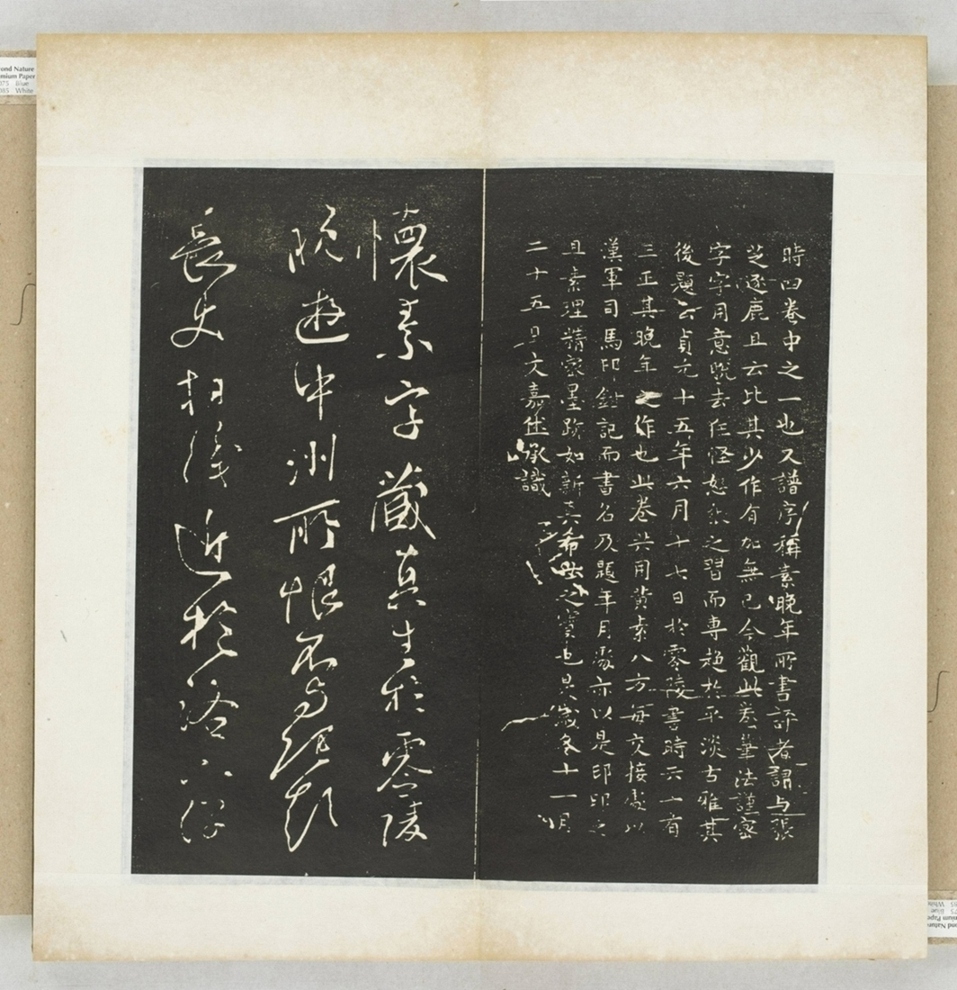 時四卷中之一也又譜序稱素晚年所書評者謂与張
芝逐鹿且云比其少作有加無已今觀此卷筆法謹密
字字用意脫去狂怪怒張之習而專趨於平淡古雅其
後題云貞元十五年六月十七日於零陵書時六十有
三正其晚年之作也此卷共用黃素八方每交接處以
漢軍司馬印鈐記而書名及題年月處亦以是印印之
且素理精密墨跡如新真希世之寶也是歲冬十一月
二十五日文嘉休承識
懷素字藏真生於零陵
晚遊中州所恨不与張顛
長史相識近於洛下得